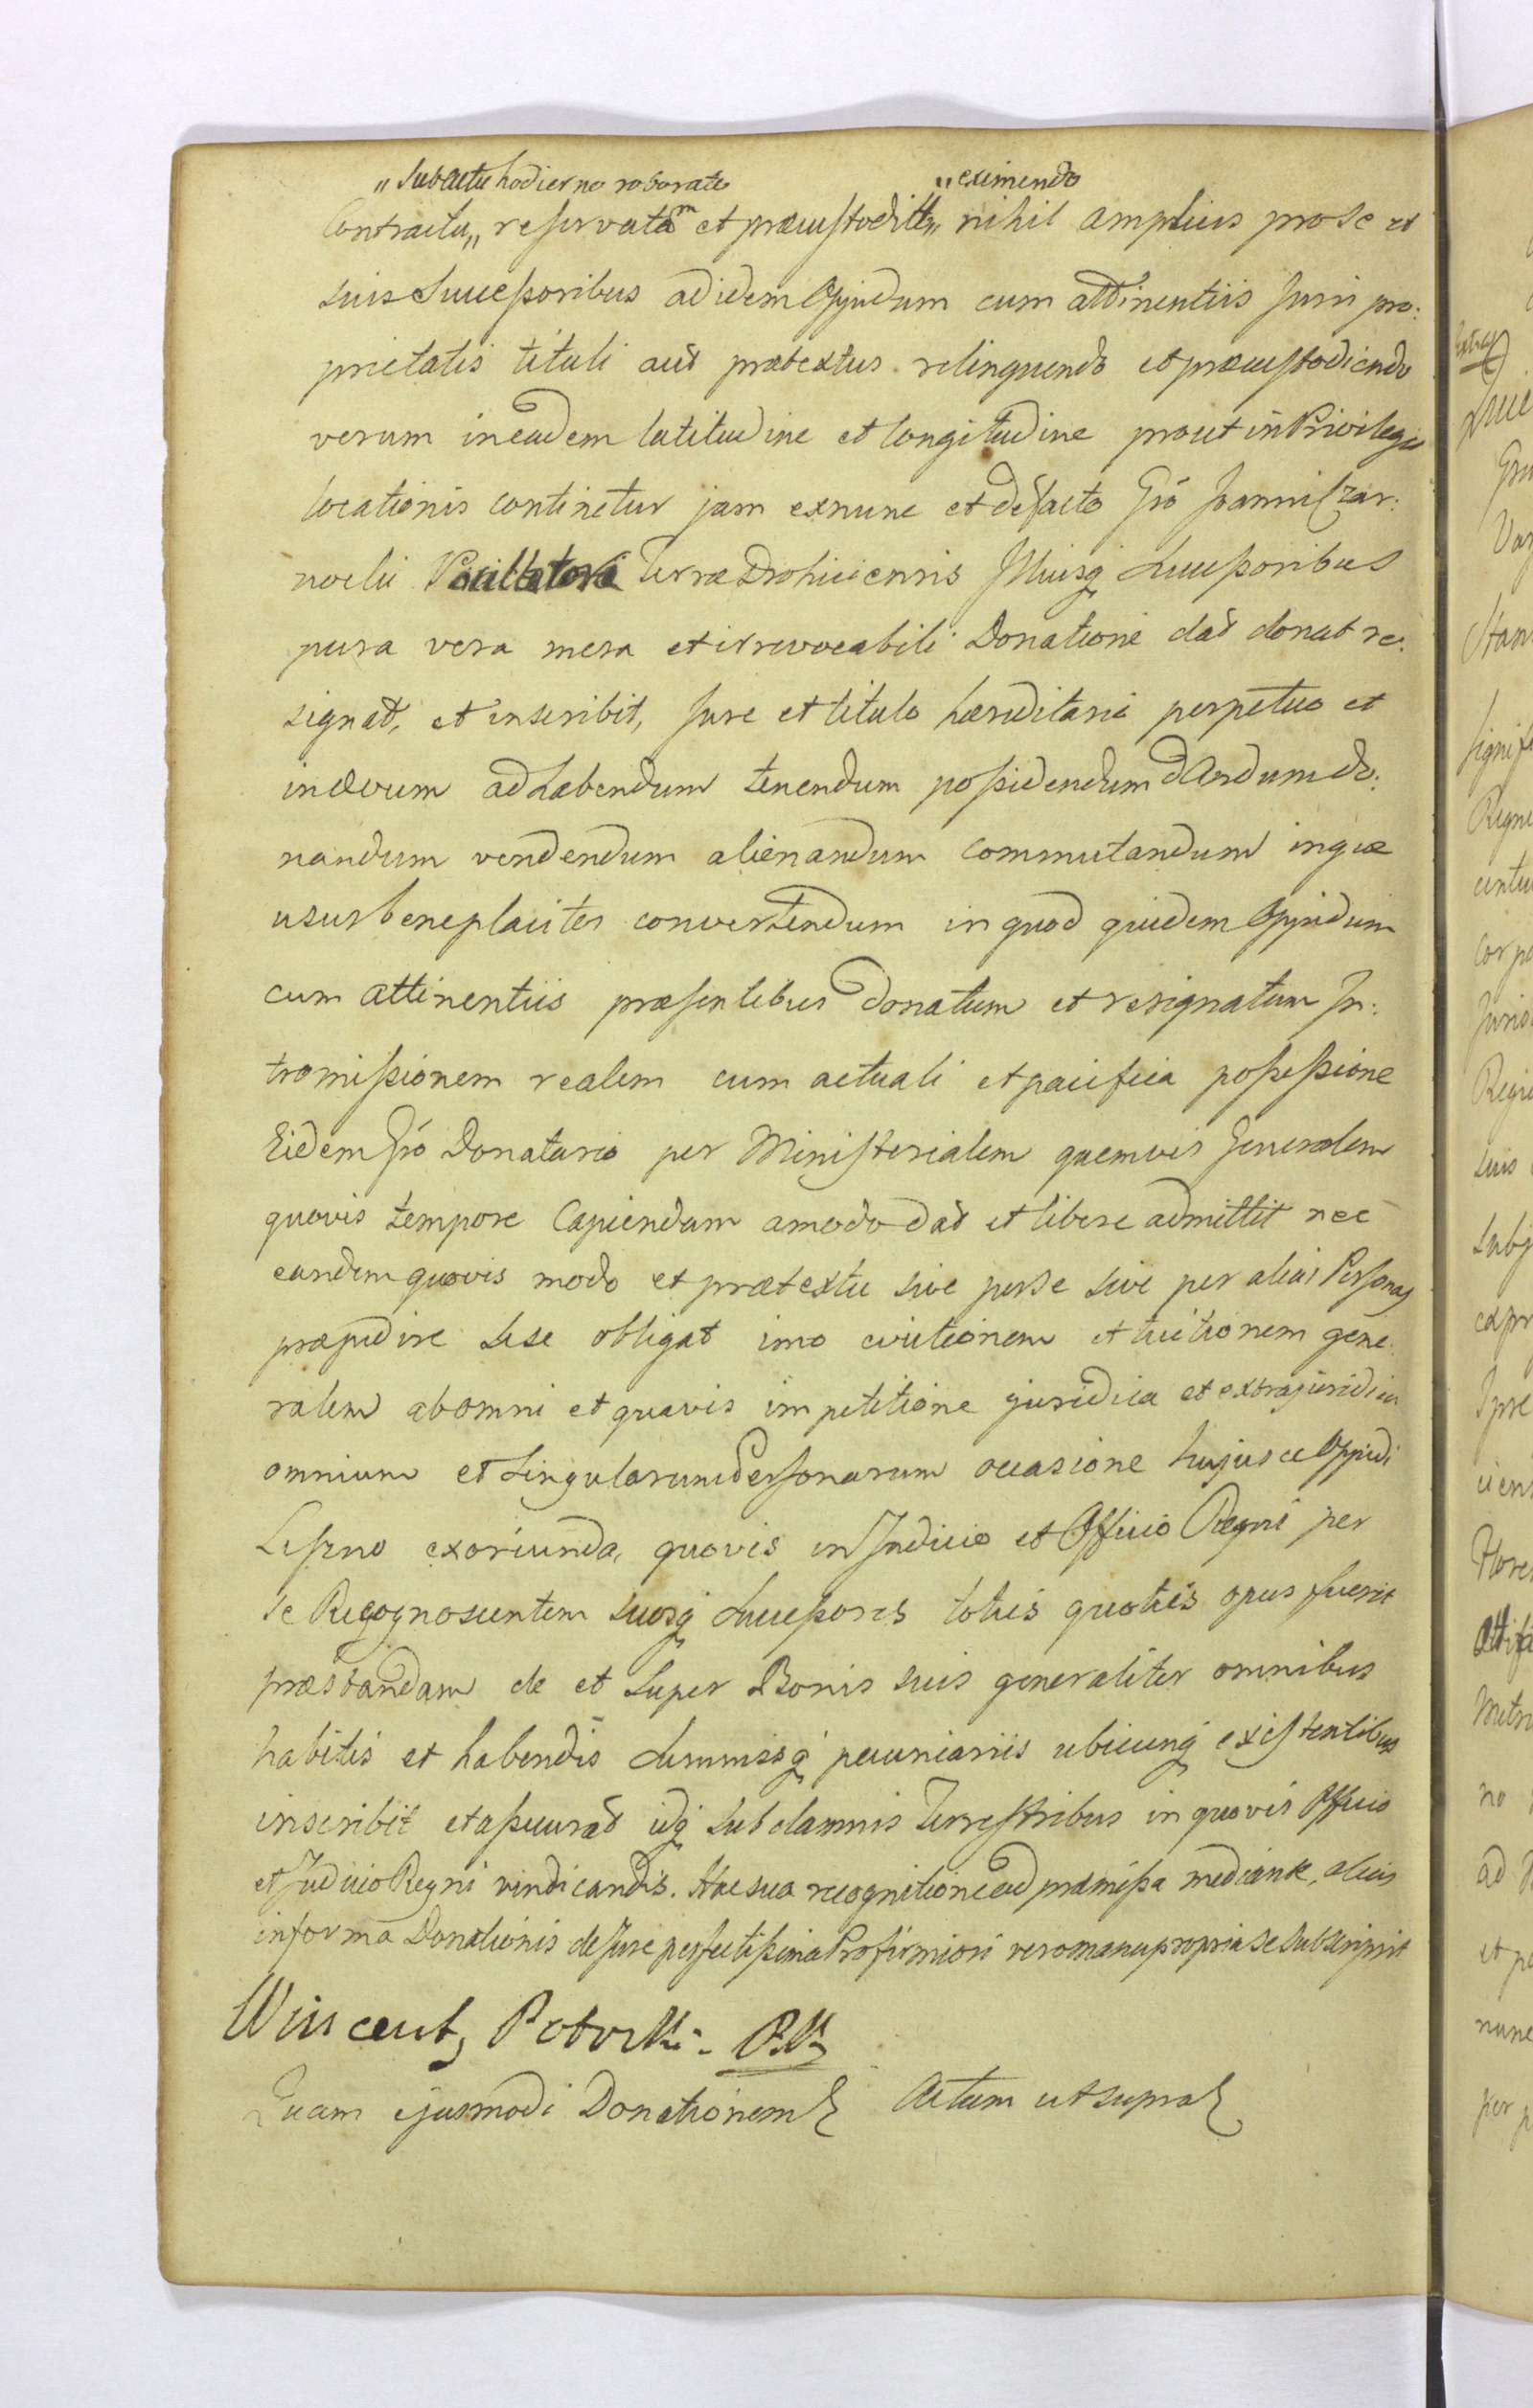 „Sub actu hodierno roborato „eximendo
Contractu„ reservatam et præcustoditam„ nihil amplius pro se et
suis Successoribus ad idem Oppidum cum attinentiis Juris pro:
prietatis tituli aut prætextus relinquendo et præcustodiendo
verum in eadem latitudine et longitudine prout in Privilegio
locationis continetur jam ex nunc et de facto Gſo Joanni Czar:
nocki Vexillatori Terræ Drohiciensis Illiusq Successoribus
pura vera mera et irrevocabili Donatione dat donat re:
signat, et inscribit, Jure et titulo hæreditario perpetuo et
in ævum ad habendum tenendum possidendum dandum do:
nandum vendendum alienandum commutandum inque
usus beneplacitos convertendum in quod quidem Oppidum
cum attinentiis præsentibus donatum et resignatum In:
tromissionem realem cum actuali et pacifica possessione
Eidem Gſo Donatario per Ministerialem quemvis Generalem
quovis tempore Capiendam amodo dat et libere admittit nec
eandem quovis modo et prætextu sive per se sive per alias Personas
præpedire sese obligat imo evictionem et tuitionem gene:
ralem ab omni et quavis impetitione juridica et extrajuridica
omnium et singularum Personarum occasione hujusce Oppidi
Leszno exoriunda, quovis in Judicio et Officio Regni per
se Recognoscentem suosq Successores toties quoties opus fuerit
præstandam de et super Bonis suis generaliter omnibus
habitis et habendis Summisq pecuniariis ubicunq existentibus
inscribit et assecurat idq sub damnis terrestribus in quovis Officio
et Judicio Regni vindicandis. Hac sua recognitione ad præmissa mediante, alias
in forma Donationis de Jure perfectissima Pro firmiori vero manu propria se subscripsit
Wincenty Potocki. PK
Quam ejusmodi Donationem Actum ut supra